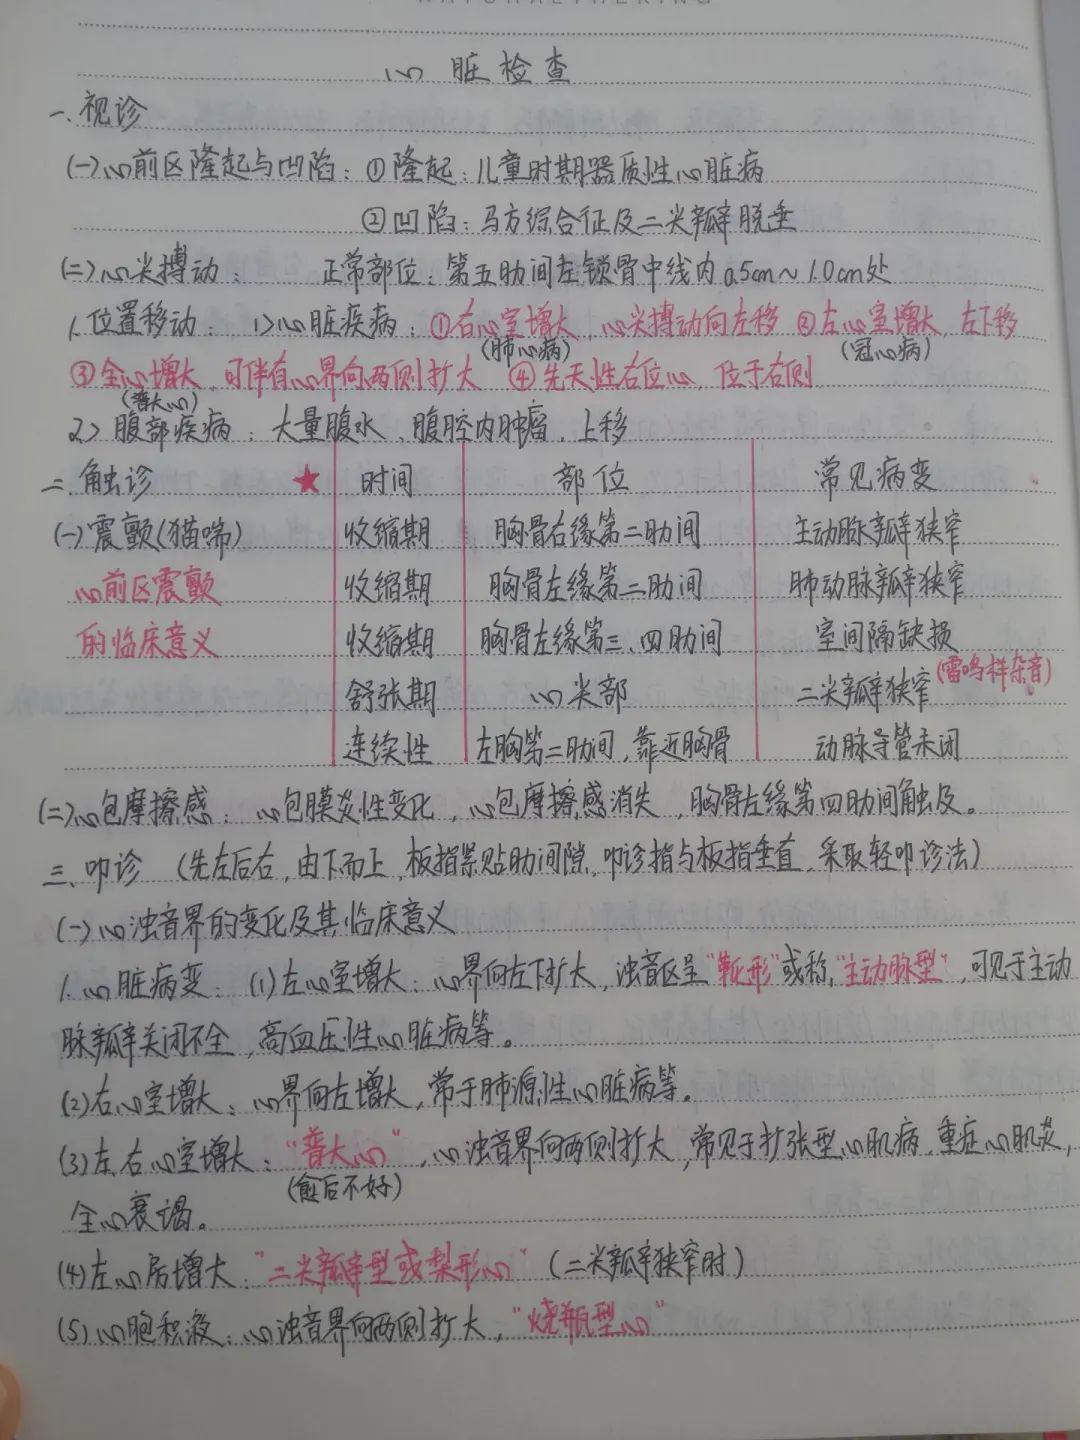 心脏检查
一、视诊
(一)心前区隆起与凹陷：①隆起：儿童时期器质性心脏病
②凹陷：马方综合征及二尖瓣脱垂
(二)心尖搏动： 正常部位：第五肋间左锁骨中线内0.5cm～1.0cm处
1.位置移动： 1>心脏疾病：①右心室增大，心尖搏动向左移 ②左心室增大，左下移
(肺心病) (冠心病)
③全心增大，可伴有心界向两侧扩大 ④先天性右位心，位于右侧
(普大心)
2>腹部疾病：大量腹水、腹腔内肿瘤，上移
二、触诊 ★ 时间 部位 常见病变
(一)震颤(猫喘) 收缩期 胸骨右缘第二肋间 主动脉瓣狭窄
心前区震颤 收缩期 胸骨左缘第二肋间 肺动脉瓣狭窄
的临床意义 收缩期 胸骨左缘第三、四肋间 室间隔缺损
舒张期 心尖部 二尖瓣狭窄(雷鸣样杂音)
连续性 左胸第二肋间，靠近胸骨 动脉导管未闭
(二)心包摩擦感：心包膜炎性变化，心包摩擦感消失，胸骨左缘第四肋间触及。
三、叩诊 (先左后右，由下而上，板指紧贴肋间隙，叩诊指与板指垂直，采取轻叩诊法)
(一)心浊音界的变化及其临床意义
1.心脏病变：(1)左心室增大：心界向左下扩大，浊音区呈"靴形"或称"主动脉型"，可见于主动
脉瓣关闭不全，高血压性心脏病等。
(2)右心室增大：心界向左增大，常于肺源性心脏病等。
(3)左、右心室增大："普大心"，心浊音界向两侧扩大，常见于扩张型心肌病，重症心肌炎，
(愈后不好)
全心衰谒。
(4)左心房增大："二尖瓣型或梨形心"(二尖瓣狭窄时)
(5)心胞积液：心浊音界向两侧扩大，"烧瓶型心"